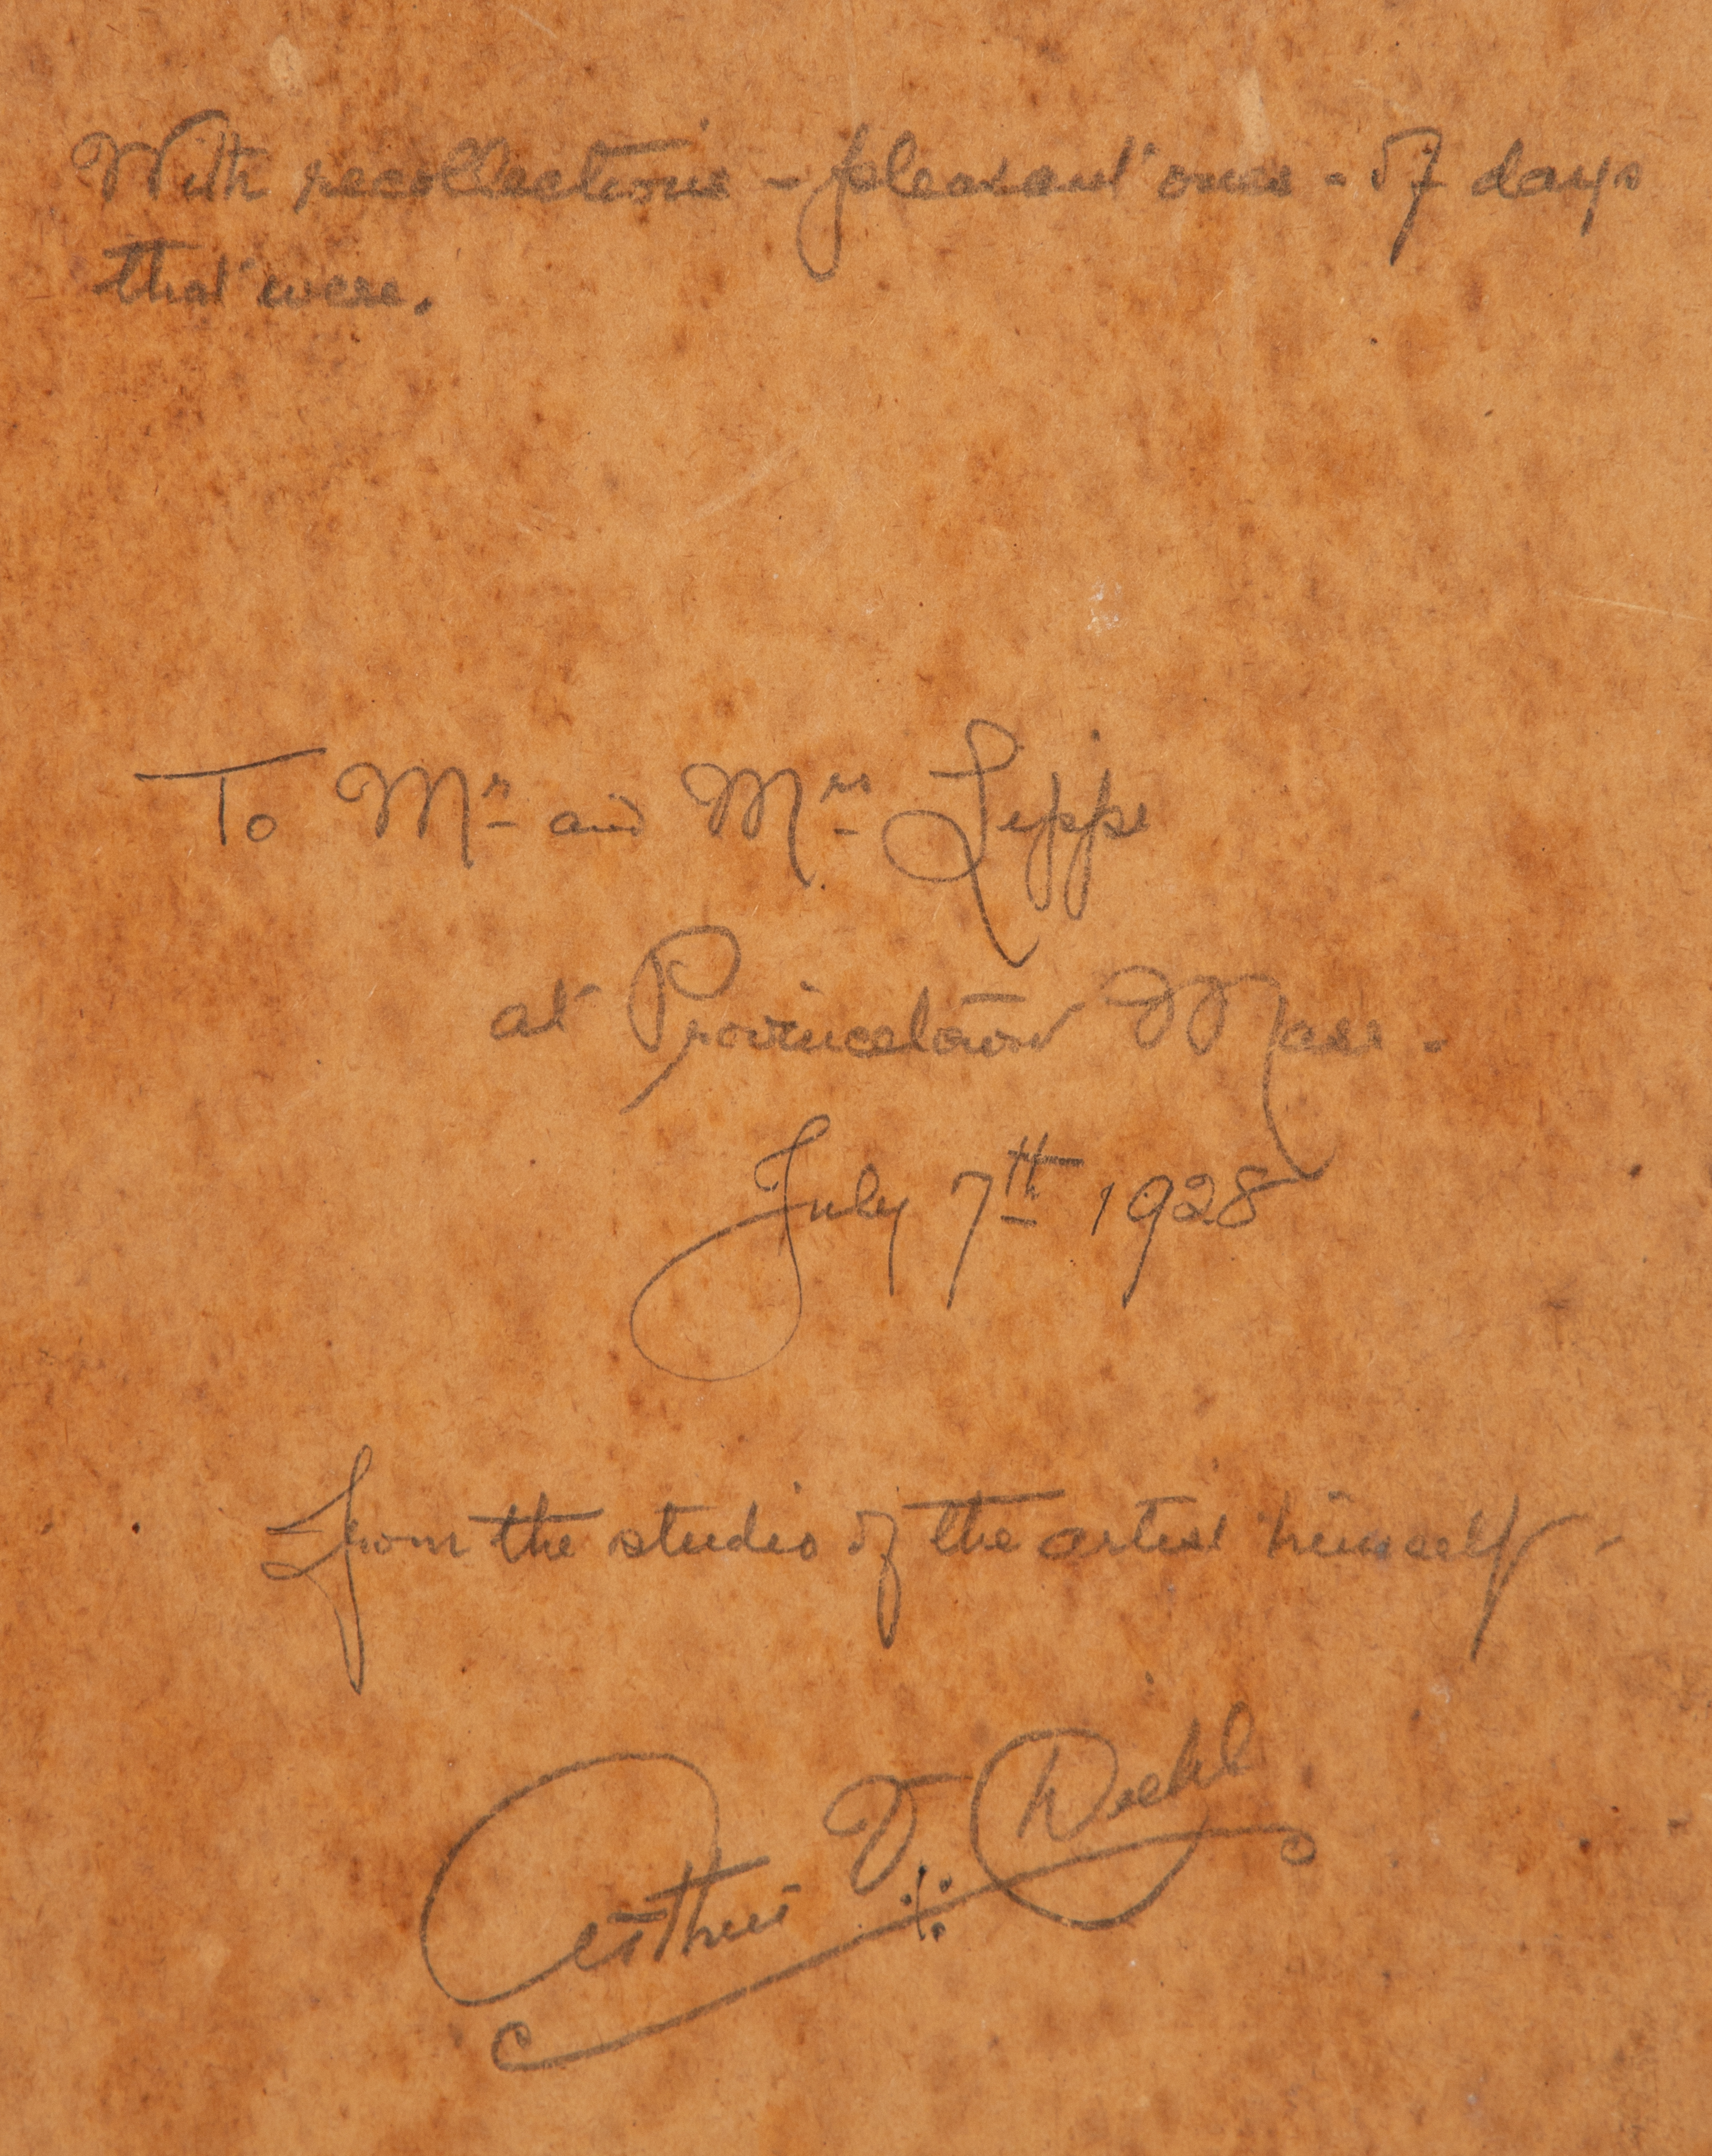 With recollections - pleasant ones - of days
that were.
To Mr and Mrs
at Provincetown Mass.
July 7th 1928
from the studio of the artist himself -
Arthur V. Diehl